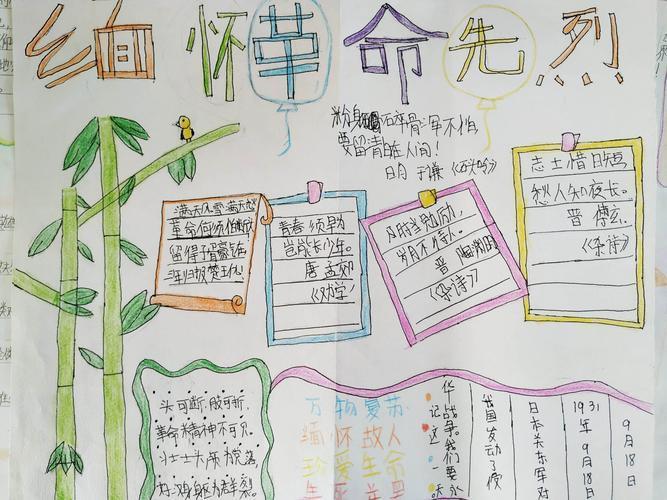 缅怀革命先烈
粉身碎骨浑不怕
要留清白在人间！
于谦《石灰吟》
满天风雪满天愁
革命何须怕断头
留得子胥豪气在
三年归报楚王仇！
青春须早为
岂能长少年。
唐 孟郊
《劝学》
及时当勉励，
岁月不待人。
晋 陶渊明
《杂诗》
志士惜日短
愁人知夜长。
晋 傅玄
《杂诗》
头可断，肢可折，
革命精神不可灭。
壮士头颅为党落，
好汉身躯为群裂。
万物复苏
缅怀故人
珍爱生命
9月18日
1931年9月18
日本关东军对
我国发动了侵
华战争。我们要永
记这一天